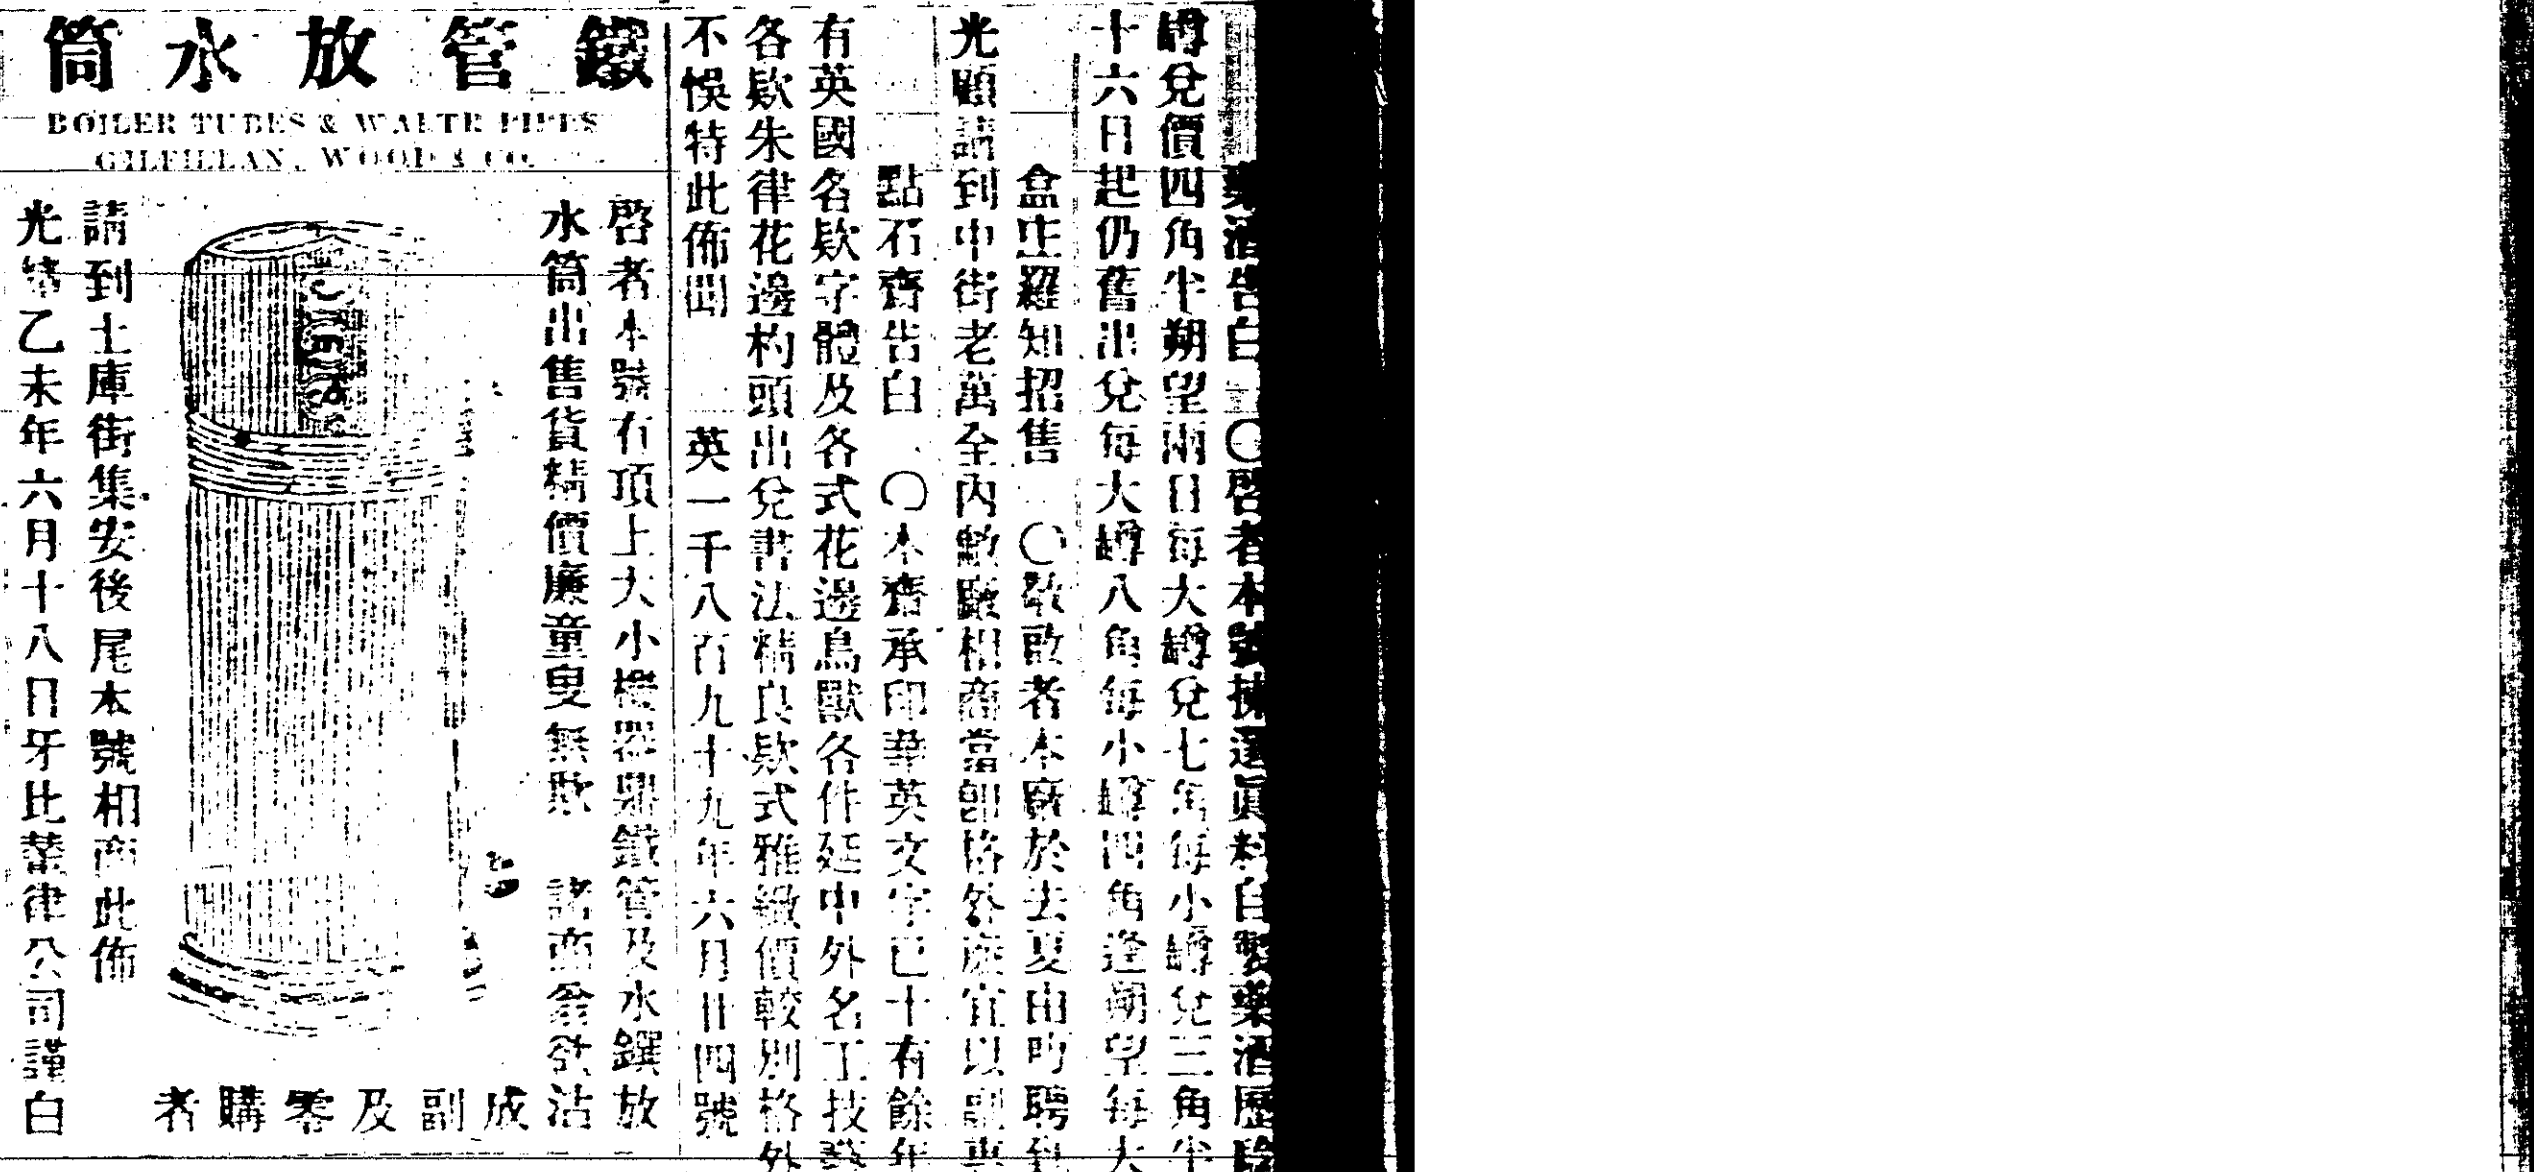 藥酒告白
〇啓者本號揀選眞料自製藥酒歷
罇兌價四角半朔望兩日每大罇兌七角每小罇兌三角半
十六日起仍舊出兌每大罇八角每小罇四角逢朔望每大
盒庄羅知招售 〇敬啟者本廠於去夏由叻聘
光顧請到中街老萬全內數廠相商當卽格外廉宜以副
點石齋告白 〇本齋承印華英文字已十有餘年
有英國名欵字體及各式花邊鳥獸各件延中外名工技藝
各欵朱律花邊杓頭出兌書法精良欵式雅緻價較別格外
不悞特此佈聞 英一千八百九十九年六月廿四號
鐵管放水筒
BOILER TUBES & WAETR PIPES
GILFILLAN, WOOD & CO.
啓者本號有項上大小機器鼎鐵管及水鑚放
水筒出售貨精價廉童叟無欺 諸商翁欲沽
成副及零購者
請到土庫街集安後尾本號相商此佈
光緖乙未年六月十八日牙比蘭律公司謹白